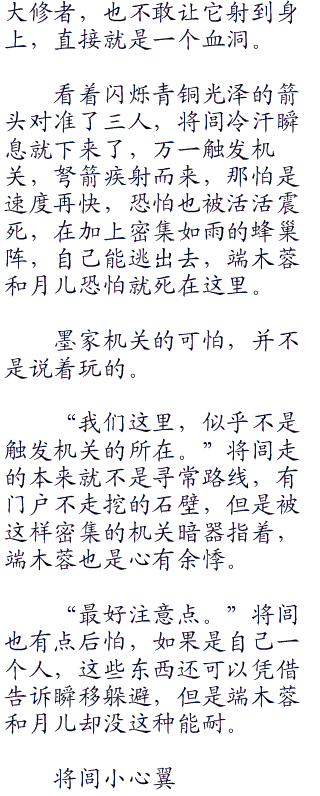 大修者，也不敢让它射到身
上，直接就是一个血洞。
看着闪烁青铜光泽的箭
头对准了三人，将闾冷汗瞬
息就下来了，万一触发机
关，弩箭疾射而来，那怕是
速度再快，恐怕也被活活震
死，在加上密集如雨的蜂巢
阵，自己能逃出去，端木蓉
和月儿恐怕就死在这里。
墨家机关的可怕，并不
是说着玩的。
“我们这里，似乎不是
触发机关的所在。”将闾走
的本来就不是寻常路线，有
门户不走挖的石壁，但是被
这样密集的机关暗器指着，
端木蓉也是心有余悸。
“最好注意点。”将闾
也有点后怕，如果是自己一
个人，这些东西还可以凭借
告诉瞬移躲避，但是端木蓉
和月儿却没这种能耐。
将闾小心翼